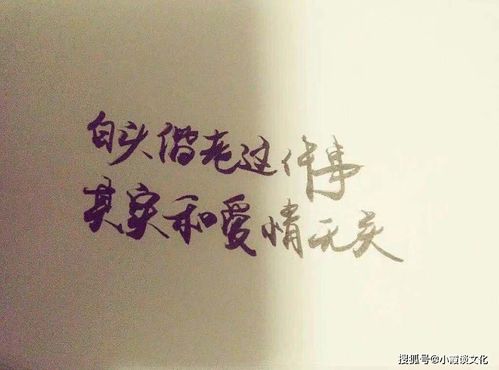 白头偕老这件事
其实和爱情无关
搜狐号@小霞谈文化